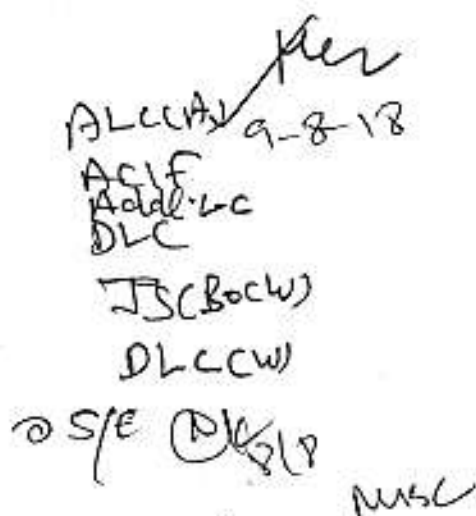 ALC(A) 9-8-18
ACIF
Addl.LC
DLC
JS(BOCW)
DLC(W)
S/E 8/8
MISC